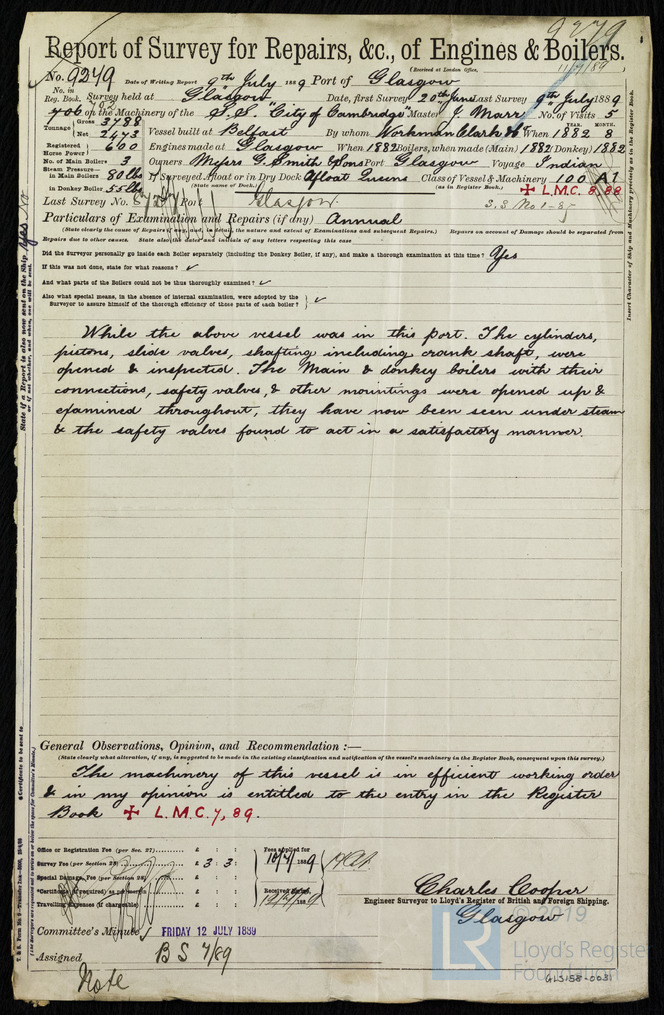 9279
Report of Survey for Repairs, &c., of Engines & Boilers.
(Received at London Office, 11/7/89)
No. 9249 Date of Writing Report 9th July 1889 Port of Glasgow
No. in Reg. Book. Survey held at Glasgow Date, first Survey 20th June Last Survey 9th July 1889
706 702 on the Machinery of the S.S. "City of Cambridge" Master J. Marr No. of Visits 5
Tonnage Gross 3788 Net 2473 Vessel built at Belfast By whom Workman Clark & Co When YEAR. 1882 MONTH. 8
Registered Horse Power 600 Engines made at Glasgow When 1882 Boilers, when made (Main) 1882 (Donkey) 1882
No. of Main Boilers 3 Owners Messrs G. Smith & Sons Port Glasgow Voyage Indian
Steam Pressure in Main Boilers 80 lbs If Surveyed Afloat or in Dry Dock Afloat Queens Class of Vessel & Machinery 100 A1
in Donkey Boiler 55 lbs (State name of Dock.) (as in Register Book.) ✠ L.M.C. 8,88
Last Survey No. Port Glasgow S.S No 1-85
Particulars of Examination and Repairs (if any) Annual
(State clearly the cause of Repairs, if any, and, in detail, the nature and extent of Examinations and subsequent Repairs.) Repairs on account of Damage should be separated from
Repairs due to other causes. State also the dates and initials of any letters respecting this case
Did the Surveyor personally go inside each Boiler separately (including the Donkey Boiler, if any), and make a thorough examination at this time? Yes
If this was not done, state for what reasons? ✓
And what parts of the Boilers could not be thus thoroughly examined? ✓
Also what special means, in the absence of internal examination, were adopted by the
Surveyor to assure himself of the thorough efficiency of those parts of each boiler? ✓
While the above vessel was in this port. The cylinders,
pistons, slide valves, shafting including crank shaft, were
opened & inspected. The Main & donkey boilers with their
connections, safety valves, & other mountings were opened up &
examined throughout, they have now been seen under steam
& the safety valves found to act in a satisfactory manner.
General Observations, Opinion, and Recommendation :—
(State clearly what alteration, if any, is suggested to be made in the existing classification and notification of the vessel's machinery in the Register Book, consequent upon this survey.)
The machinery of this vessel is in efficient working order
& in my opinion is entitled to the entry in the Register
Book ✠ L.M.C. 7, 89.
Office or Registration Fee (per Sec. 27) £ : : Fees applied for
Survey Fee (per Section 28) £ 3 : 3 : 10/7/1889
Special Damage Fee (per Section 28) £ : :
*Certificate (if required) as per section £ : : Received
Travelling Expenses (if chargeable) £ : : 12/7/1889
Charles Cooper
Engineer Surveyor to Lloyd's Register of British and Foreign Shipping.
Glasgow
Committee's Minute FRIDAY 12 JULY 1889
Assigned B S 7/89
Note
LR
© 2019
Lloyd's Register
Foundation
GLS158-0031
Insert Character of Ship and Machinery precisely as in the Register Book.
State if a Report is also now sent on the Ship Yes
or if not whether, and when, one will be sent.